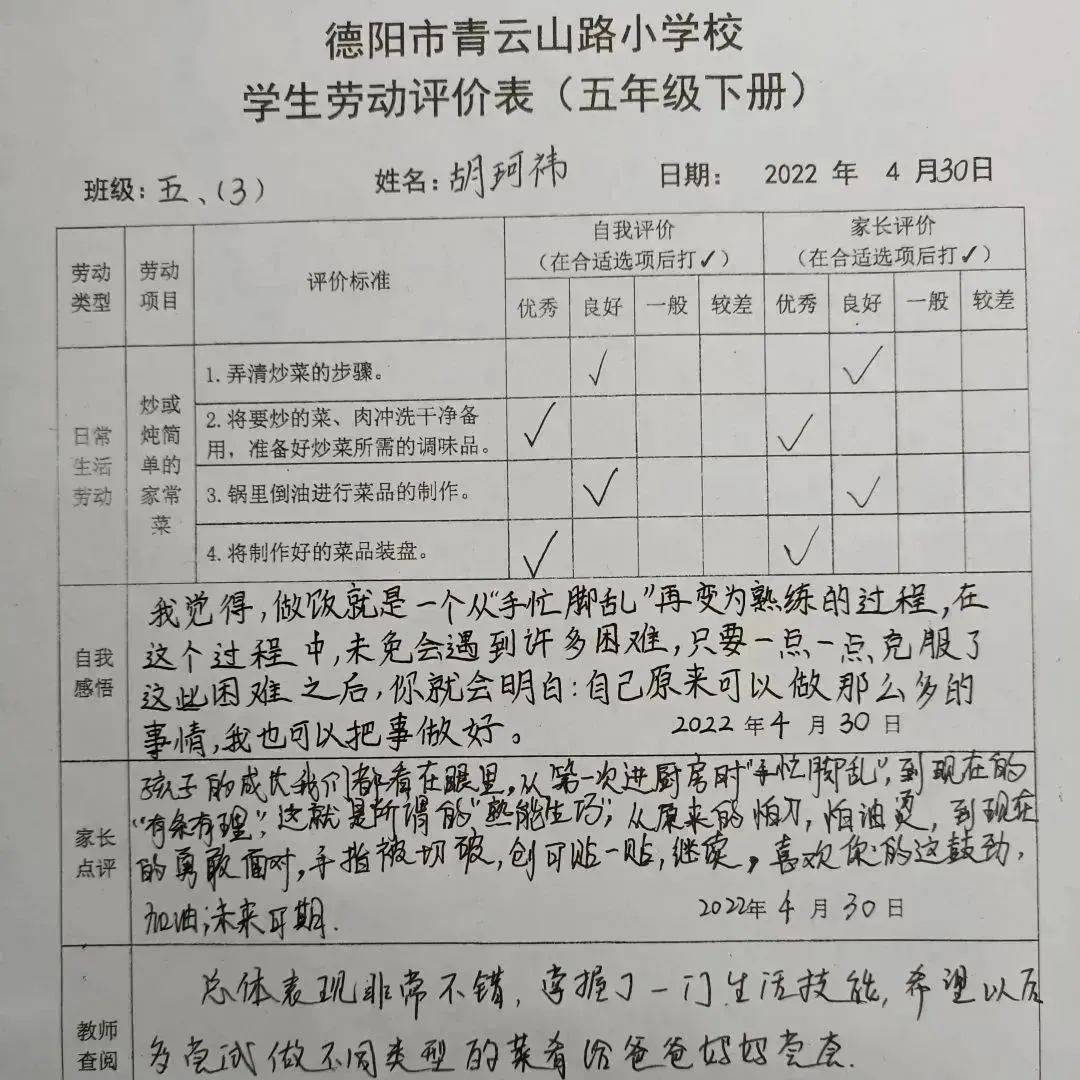 德阳市青云山路小学校
学生劳动评价表（五年级下册）
班级：五、（3） 姓名：胡珂祎 日期： 2022 年 4 月30日
劳动类型 劳动项目 评价标准 自我评价（在合适选项后打✓） 家长评价（在合适选项后打✓）
优秀 良好 一般 较差 优秀 良好 一般 较差
日常生活劳动 炒或炖简单的家常菜
1. 弄清炒菜的步骤。 ✓ ✓
2. 将要炒的菜、肉冲洗干净备
用，准备好炒菜所需的调味品。 ✓ ✓
3. 锅里倒油进行菜品的制作。 ✓ ✓
4. 将制作好的菜品装盘。 ✓ ✓
自我感悟
我觉得，做饭就是一个从“手忙脚乱”再变为熟练的过程，在
这个过程中，未免会遇到许多困难，只要一点一点克服了
这些困难之后，你就会明白：自己原来可以做那么多的
事情，我也可以把事做好。 2022 年 4 月 30 日
家长点评
孩子的成长我们都看在眼里，从第一次进厨房时“手忙脚乱”，到现在的
“有条有理”，这就是所谓的“熟能生巧；从原来的怕刀，怕油烫，到现在
的勇敢面对，手指被切破，创可贴一贴，继续，喜欢你的这鼓劲，
加油，未来可期． 2022年 4 月 30 日
教师查阅
总体表现非常不错，掌握了一门生活技能，希望以后
多尝试做不同类型的菜肴给爸爸妈妈尝尝．